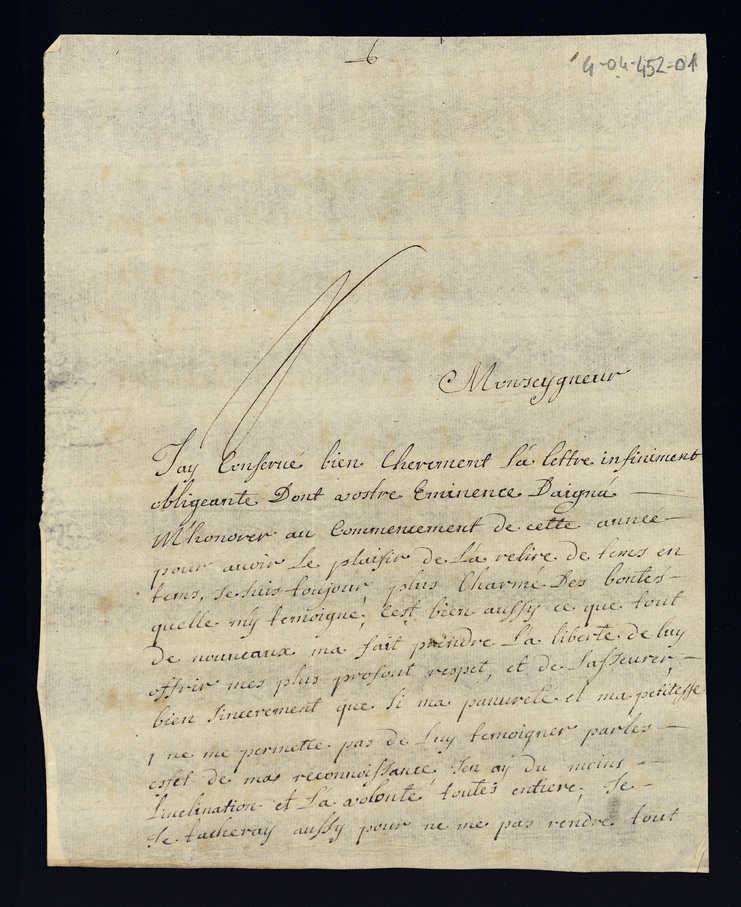 6
4-04-452-01
Monseygneur
J'ay Conserué bien Cherement La lettre infiniment
obligeante Dont vostre Eminence Daigna
M'honorer au Commencement de cette année
pour avoir Le plaisir de La relire de tems en
tems, Je suis toujour plus Charmé Des bontés
quelle m'y temoigne, C'est bien aussy ce que tout
De nouveaux ma fait prendre La liberte de luy
offrir mes plus profont respet, et de L'asseurer
bien Sincerement que Si ma pauureté et ma petitesse
ne me permette pas de Luy temoigner parles
esfet de mas reconnoissance, J'en ay du moins
L'inclination et La volonté toutes entiere, Je
Je tacheray aussy pour ne me pas rendre tout